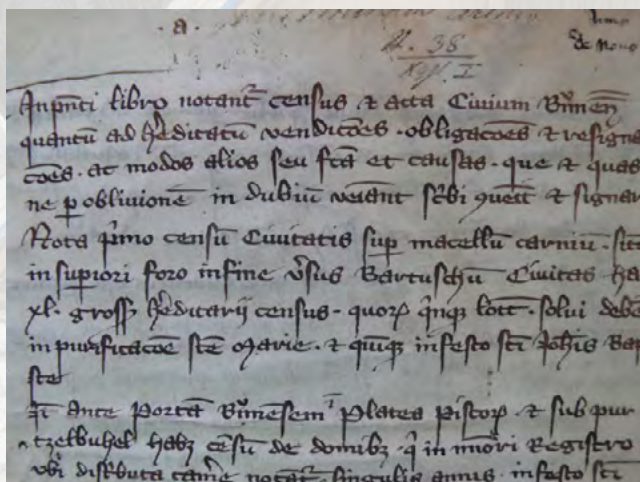 ·a·
N. 38
de Novo
Inpn̄ti libro notant᷑ census ⁊ acta Civium
quantū ad h̓editatū vendic̄oes · obligac̄oes ⁊ resigna
c̄oes · ac modos alios seu fc̄a et causas · que ⁊ quas
ne ꝑ oblivionē in dubiū veīant sc̓bi ⁊ signar
Nota p̓mo censū Civitatis sup̱ macellū carniū · sit
in sup̱iori foro in fine v̓sus Bartuschū Civitas ha
xl · gross h̓editarij census · quoꝝ q̓nqꝫ · solui debe
in purificac̄oe sc̄e Marie · ⁊ quīqꝫ in festo sc̄i Joh̄is Bap
ste
It̄ Ante Portā Platea Pistoꝝ · ⁊ sub pur
tzelbuhel habꝫ cēsū de domibꝫ · q̓ in mīori Registro
vbi dist̓buta notat᷑ · singulis annis · in festo sc̄i